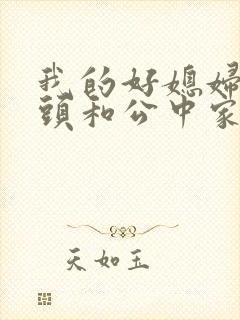 我的好媳婦
頭和公中家
天如玉